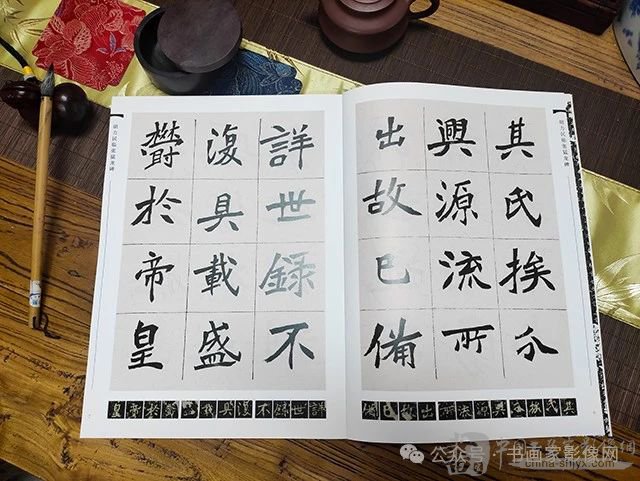 其氏族分
興源流所
出故已備
詳世錄不
復具載盛
欝於帝皇
其氏族分興源流所出故已備
詳世錄不復具載盛欝於帝皇
公众号 · 书画家影像网
china-shyx.com